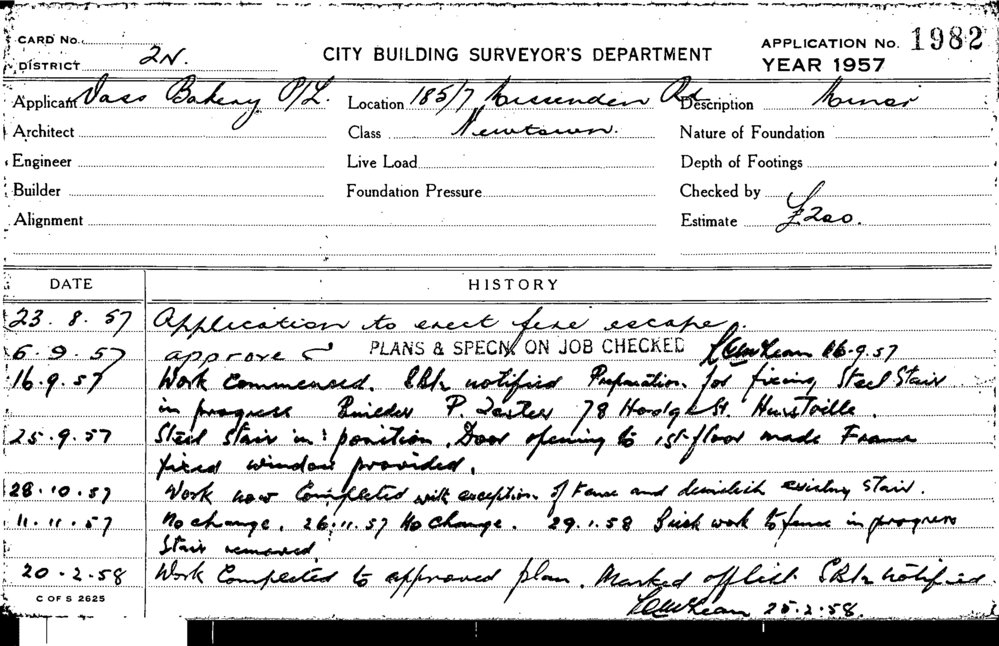 CARD No.
DISTRICT 2N.
CITY BUILDING SURVEYOR'S DEPARTMENT
APPLICATION No. 1982
YEAR 1957
Applicant Vass Bakery P/L. Location 185/7 Missenden Rd Description Minor
Architect Class Newtown. Nature of Foundation
Engineer Live Load Depth of Footings
Builder Foundation Pressure Checked by
Alignment Estimate £200.
DATE HISTORY
23.8.57 Application to erect fire escape.
6.9.57 approve PLANS & SPECN. ON JOB CHECKED 16.9.57
16.9.57 Work Commenced. notified Preparation for fixing Steel Stair
in progress Builder P. 78 St. Hurstville.
25.9.57 Steel Stair in position. Door opening to 1st floor made Frame
fixed window provided.
28.10.57 Work now Completed with exception of Fence and demolish existing Stair.
11.11.57 No change. 26.11.57 No Change. 29.1.58 Brick work to fence in progress
Stair removed.
20.2.58 Work Completed to approved plan. Marked off list notified
25.2.58.
C OF S 2625